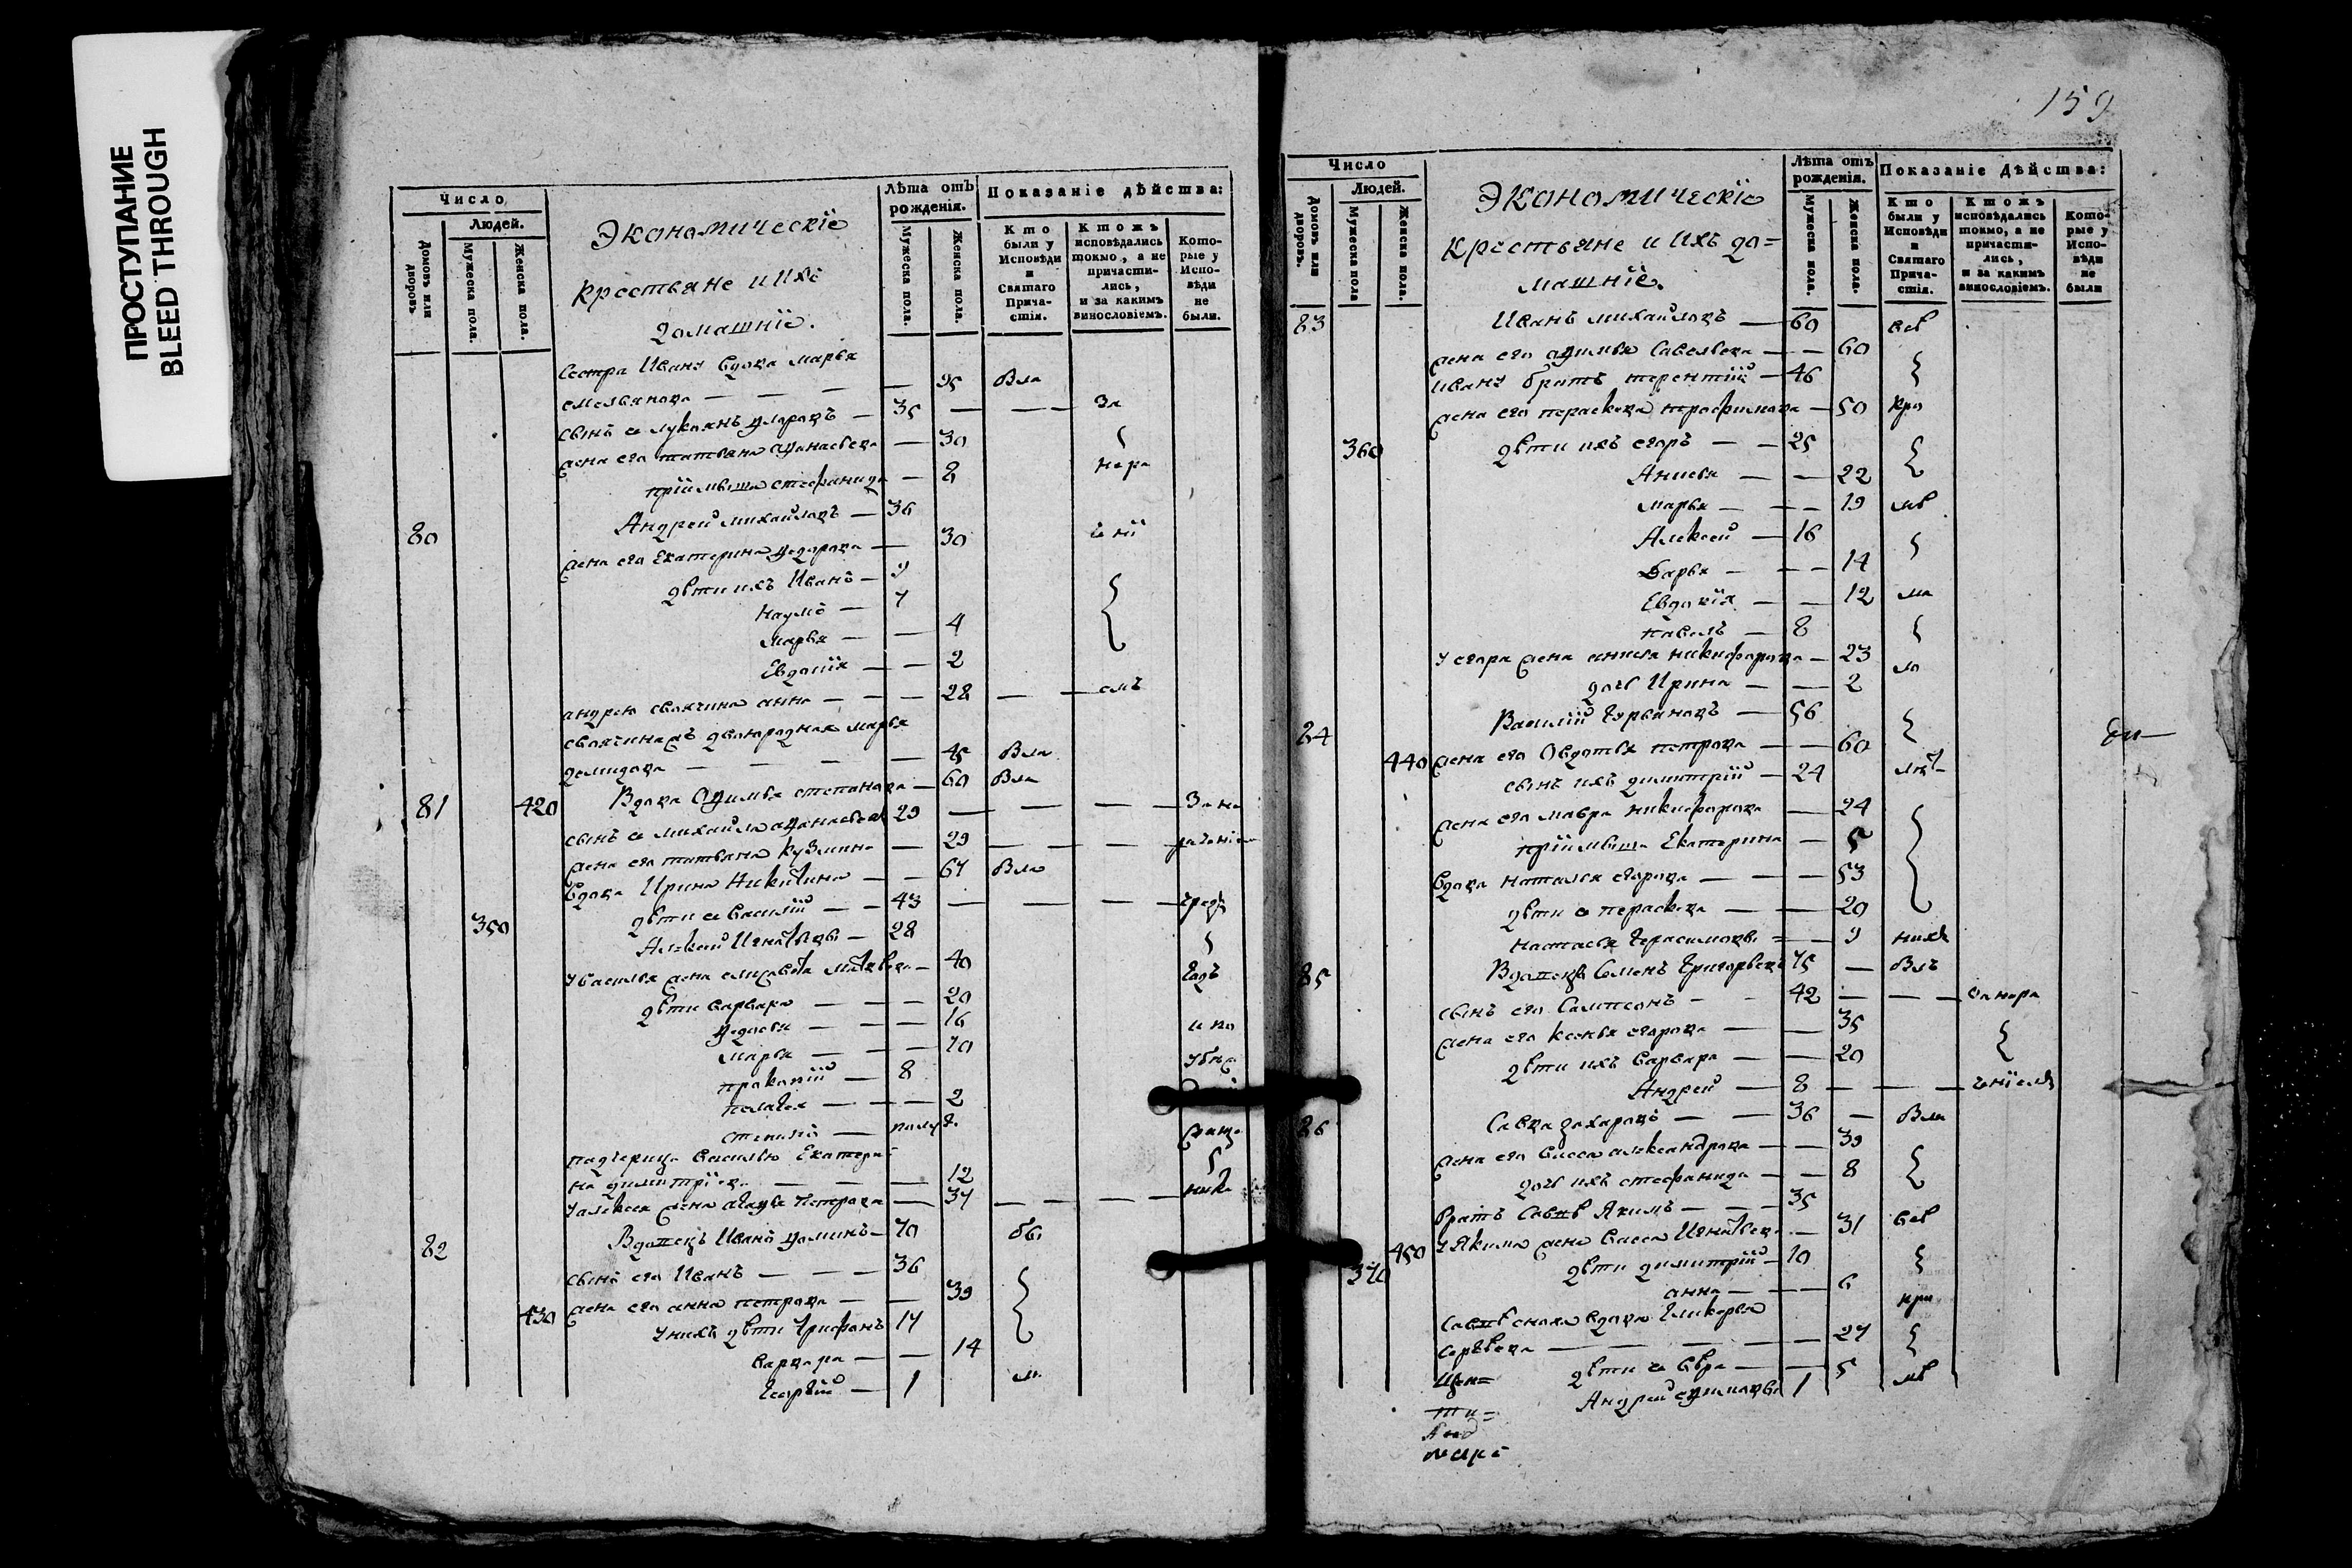 ПРОСТУПАНИЕ
BLEED THROUGH
Число
Людей.
Домовъ или дворовъ.
Мужеска пола.
Женска пола.
Экономическїе
крестьяне и ихъ
домашнїе.
Лѣта отъ рожденія.
Мужеска пола.
Женска пола.
Показаніе дѣйства:
Кто были у Исповѣди и Святаго Прича-стія.
Ктожъ исповѣдались токмо, а не причасти-лись, и за какимъ винословіемъ.
Кото-рые у Испо-вѣди не были.
Сестра Ивану вдова марья
емельянова — — — — 95 Вла
сынъ ея лукьянъ — 35 — — — За
жена его татьяна — 30
прїимышъ стефанида — 8 нера
80 Андрей михайловъ — 36
жена его Екатерина федорова — 30 ченїї
дѣти ихъ Иванъ — 9
наумъ — 7
марья — — 4
Евдокїя — — 2
андрею своячина анна — — — 28 — — емъ
своячинахъ двоюродная марья
демидова — — — — 45 Вла
81 420 Вдова Афимья степанова — 60 Вла
сынъ ея михайла 29 — — — — За не
жена его татьяна кузмина — 29 — — — раченїе
вдова Ирина Никитина — — 67 Вла
дѣти ея василїй — — 43 — — — —
350 Алексей Игнатьевы — 28
У василья жена елисавета — 40
дѣти варвара — — — 20
федосья — — — 16 и по
марья — — — 10
прокопїй — 8
пелагея — — — 2
степанъ — полу г.
падчерица василью Екатери-
на димитрїева — — — 12
У алексея жена агафья петрова — 37 — — — —
82 Вдовецъ Иванъ фоминъ — 70 бы
сынъ его Иванъ — — — 36
430 жена его анна петрова — — 39
У нихъ дѣти трифонъ 17
варвара — — 14
георгїй — 1 ли
159
Число
Людей.
Домовъ или дворовъ.
Мужеска пола
Женска пола.
Экономическїе
крестьяне и ихъ до=
машнїе.
Лѣта отъ рожденія.
Мужеска пола.
Женска пола.
Показаніе Дѣйства:
Кто были у Исповѣди и Святаго Прича-стія.
Ктожъ исповѣдались токмо, а не причасти-лись, и за какимъ винословіемъ.
Кото-рые у Испо-вѣди не были
83 Иванъ михайловъ — 60 всѣ
жена его афимья савельева — — 60
ивану братъ терентїй — 46
жена его параскева трофимова — 50 кро
360 дѣти ихъ егоръ — — 25
Анисья — — 22
марья — — — 19 мѣ
Алексей — 16
Дарья — — — 14
Евдокїя — — 12 ма
павелъ — 8
У егора жена анисья никифорова — 23 ло
дочь Ирина — — 2
84 Василїй — 56
440 жена его Авдотья петрова — — 60
сынъ ихъ димитрїй — 24
жена его мавра никифорова — 24
прїимышъ Екатерина — 5
вдова наталья егорова — — — 53
дѣти ея параскева — — 20
настасья герасимовы = — 9 нихъ
85 Вдовецъ Семенъ Григорьевъ 75 — Влъ
сынъ его Сампсонъ — — 42 — — — за нера
жена его ксенья егорова — — 35
дѣти ихъ варвара — — 20
Андрей — 8 — — — ченїемъ
86 Савва захаровъ — — 36 — Вла
жена его васса александрова — — 39
дочь ихъ стефанида — — 8
братъ Саввѣ Якимъ — — — 35
450 У Якима жена васса Игнатьева — 31 всѣ
370 дѣти димитрїй — 10
анна — — — 6
Саввѣ сноха вдова гликерья при
Сергѣева — — — — — 27
дѣти ея вѣра — — 5 мѣ
Андрей 1